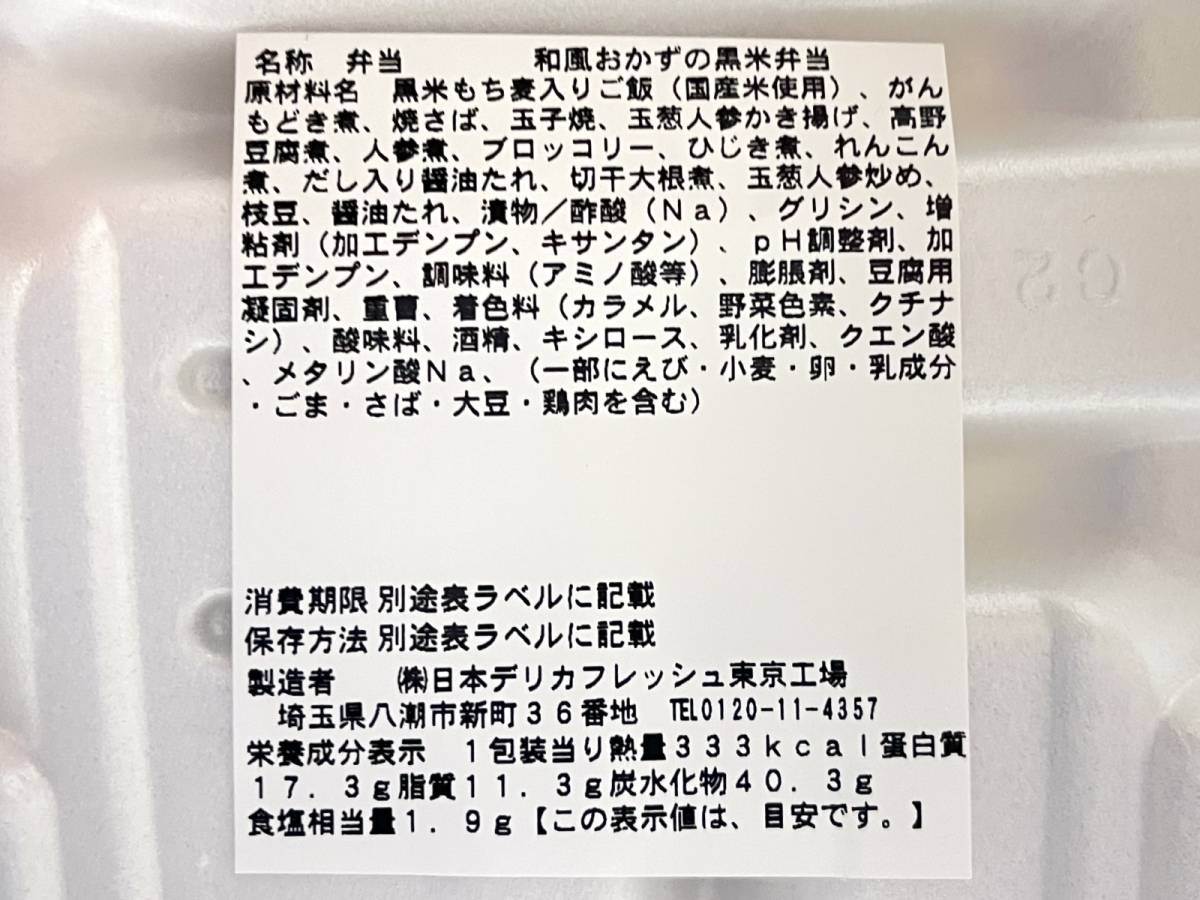 名称　弁当　　　　和風おかずの黒米弁当
原材料名　黒米もち麦入りご飯（国産米使用）、がん
もどき煮、焼さば、玉子焼、玉葱人参かき揚げ、高野
豆腐煮、人参煮、ブロッコリー、ひじき煮、れんこん
煮、だし入り醤油たれ、切干大根煮、玉葱人参炒め、
枝豆、醤油たれ、漬物／酢酸（Ｎａ）、グリシン、増
粘剤（加工デンプン、キサンタン）、ｐＨ調整剤、加
工デンプン、調味料（アミノ酸等）、膨脹剤、豆腐用
凝固剤、重曹、着色料（カラメル、野菜色素、クチナ
シ）、酸味料、酒精、キシロース、乳化剤、クエン酸
、メタリン酸Ｎａ、（一部にえび・小麦・卵・乳成分
・ごま・さば・大豆・鶏肉を含む）
消費期限 別途表ラベルに記載
保存方法 別途表ラベルに記載
製造者　　㈱日本デリカフレッシュ東京工場
埼玉県八潮市新町３６番地　TEL0120-11-4357
栄養成分表示　１包装当り熱量３３３ｋｃａｌ蛋白質
１７．３ｇ脂質１１．３ｇ炭水化物４０．３ｇ
食塩相当量１．９ｇ【この表示値は、目安です。】